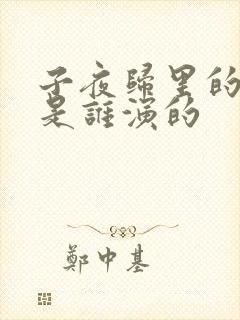 子夜歸里的
是誰演的
鄭中基